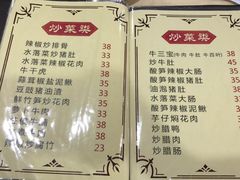 炒菜类
辣椒炒排骨 38
水落菜炒猪肚 38
水落菜辣椒花肉 33
牛干虎 38
蒜茸椒盐泥鳅 38
豆豉猪油渣 33
鲜竹笋炒花肉 35
35
23
炒菜类
牛三宝(牛肉 牛肚 牛百叶) 38
炒牛肚 38
酸笋辣椒大肠 38
酸笋辣椒猪肚 38
油泡猪肚 38
水落菜大肠 38
酸笋辣椒泥鳅 38
芋仔焖花肉 33
炒腊鸭 38
炒腊肉 35
炒腊肠 35